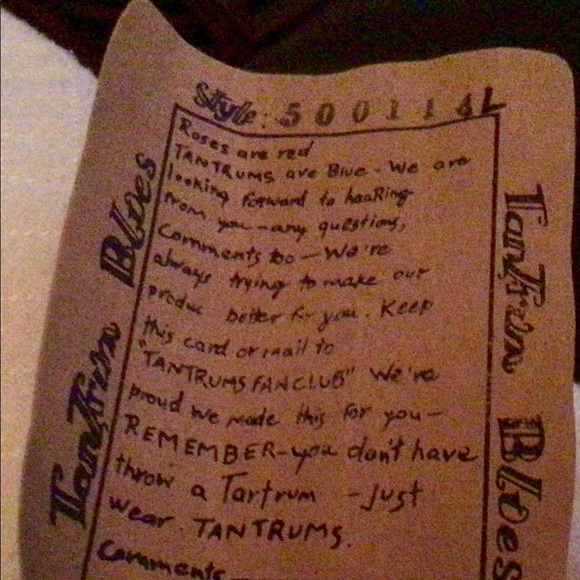 Style: 500114L
Roses are red
TANTRUMS are Blue - We are
looking forward to haaRing
from you - any questions,
comments too - We're
always trying to make our
produc better for you. Keep
this card or mail to
"TANTRUMS FANCLUB" We're
proud we made this for you -
REMEMBER - you don't have
throw a Tartrum - just
wear TANTRUMS.
Comments
Tantrum Blues
Tantrum Blues